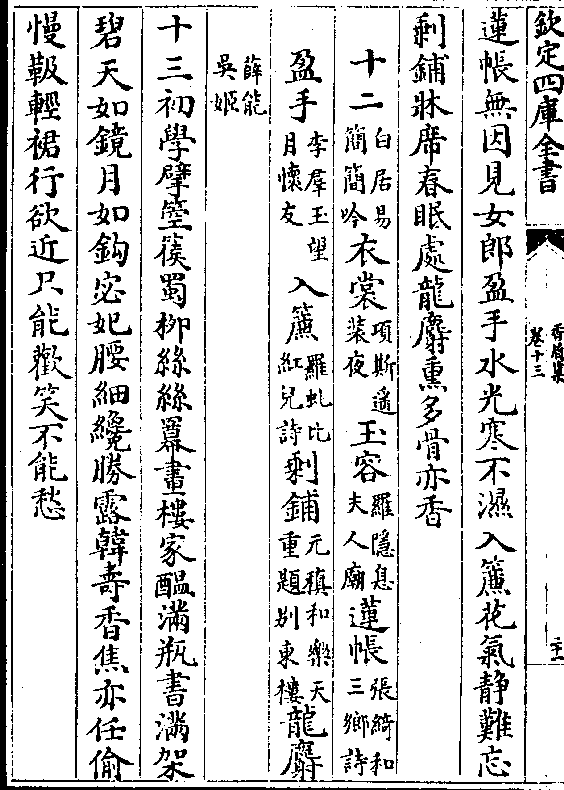 欽定四庫全書
香屑集
卷十三
二十一
蓮帳無因見女郎盈手水光寒不濕入簾花氣静難忘
剩鋪牀席春眠處龍麝熏多骨亦香
十二白居易簡簡吟衣裳項斯遥裝夜玉容羅隱息夫人廟蓮帳張綺和三鄉詩
盈手李羣玉望月懷友入簾羅虬比紅兒詩剩鋪元稹和樂天重題别東樓龍麝
薛能吳姬
十三初學擘箜篌蜀栁絲絲羃畫樓家醖滿瓶書滿架
碧天如鏡月如鈎宓妃腰細纔勝露韓壽香焦亦任偷
慢靸輕裙行欲近只能歡笑不能愁